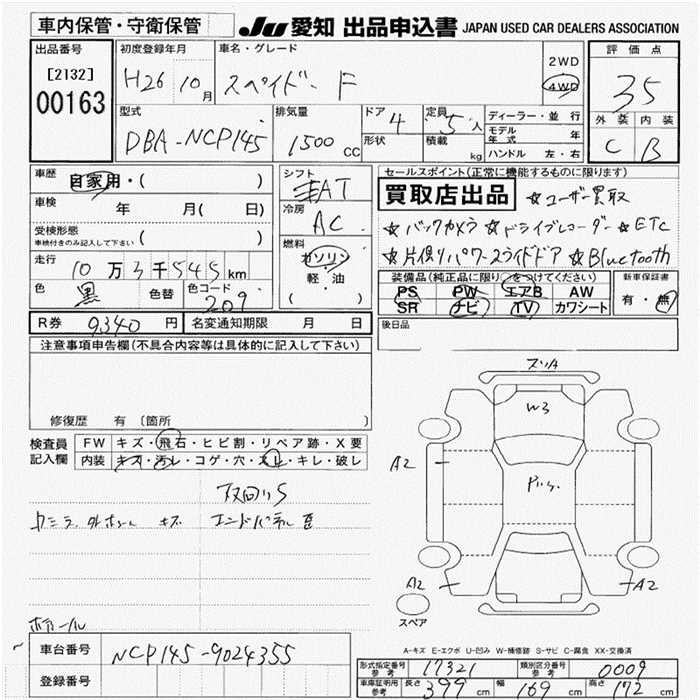 車内保管・守衛保管
JU 愛知 出品申込書 JAPAN USED CAR DEALERS ASSOCIATION
出品番号
[2132]
00163
初度登録年月
H26 10月
車名・グレード
スペイド F
2WD
4WD
評価点
35
外装 内装
C B
型式
DBA-NCP145
排気量
1500 CC
ドア 4
形状
定員 5人
積載 kg
ディーラー・並行
モデル年式 年
ハンドル 左・右
車歴
自家用・( )
車検 年 月( 日)
受検形態
車検付きのみ記入して下さい ( )
走行
10万3千545km
色 黒 色替 色コード 209
シフト
AT
冷房
AC
燃料
ガソリン
軽・油
( )
セールスポイント(正常に機能するものに限ります)
買取店出品 ☆ユーザー買取
☆バックカメラ ☆ドライブレコーダー ☆ETC
☆片側パワースライドドア ☆Bluetooth
装備品(純正品に限り○をつけてください)
PS PW エアB AW
SR ナビ TV カワシート
新車保証書
有・無
後日品
R券 9340円 名変通知期限 月 日
注意事項申告欄(不具合内容等は具体的に記入して下さい)
修復歴 有〔箇所 〕
検査員記入欄
FW キズ・飛石・ヒビ割・リペア跡・X要
内装 キズ・汚レ・コゲ・穴・スレ・キレ・破レ
エンドパネル
車台番号 NCP145-9024355
登録番号
スリA
W3
A2
A2
A2
スペア
A-キズ E-エクボ U-凹み W-補修跡 S-サビ C-腐食 XX-交換済
形式指定番号 参考 17321 類別区分番号 参考 0009
車庫証明用 参考 長さ 399cm 幅 169cm 高さ 172cm